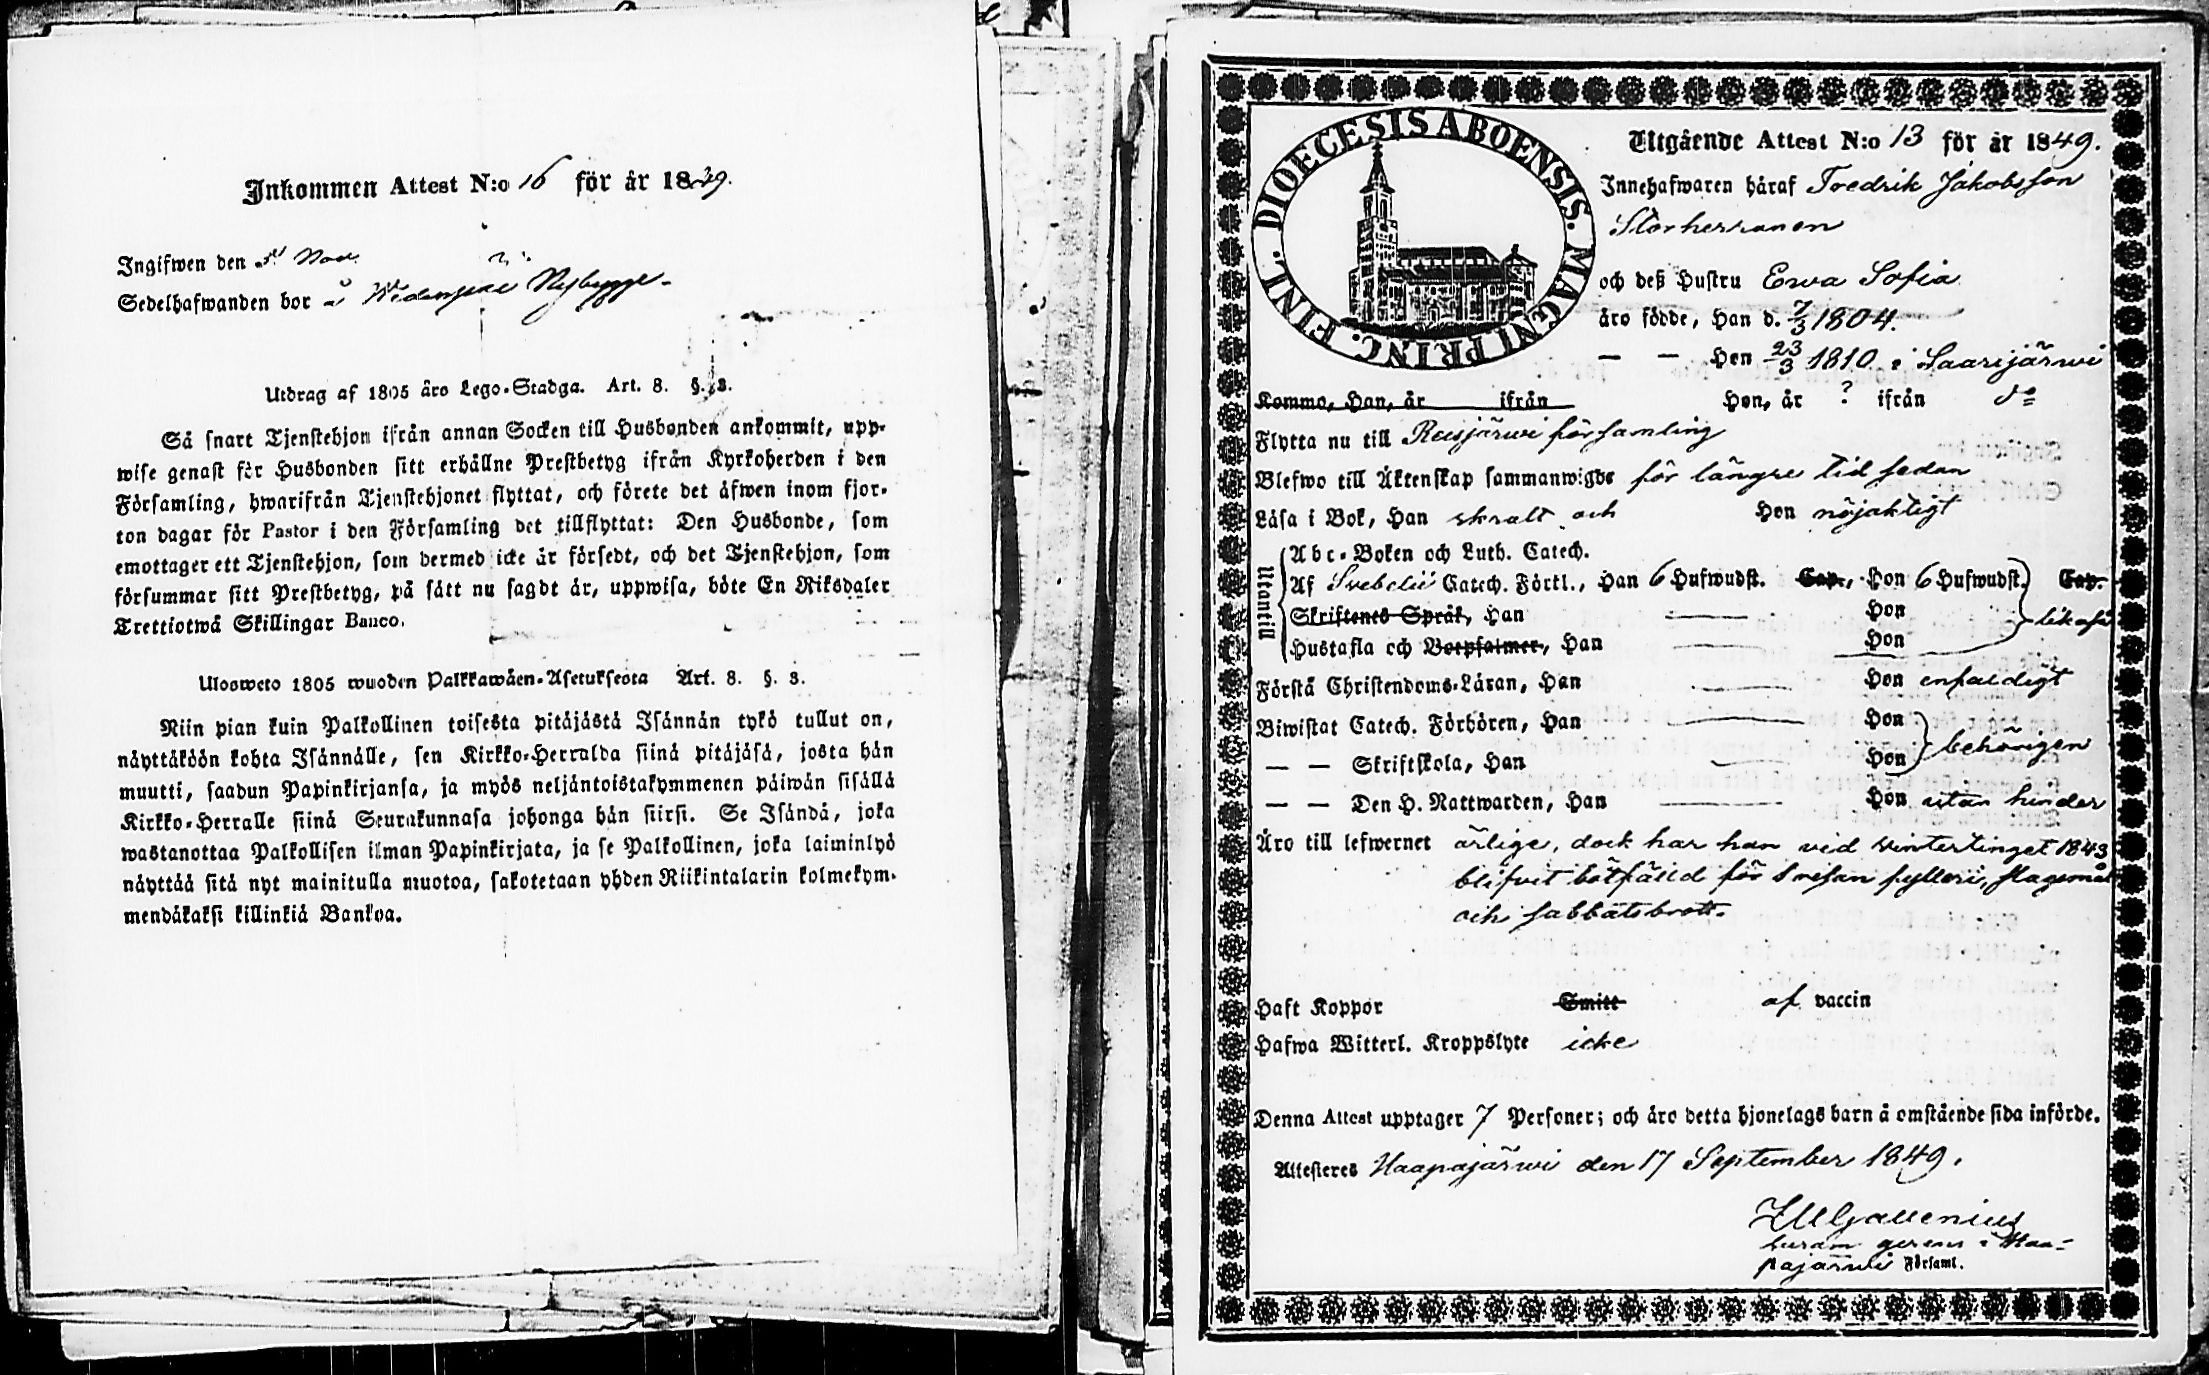 Inkommen Attest N:o 16 för år 1849.
Ingifwen den Nov.
Sedelhafwanden bor å Nybygge.
Utdrag af 1805 års Lego-Stadga. Art. 8. §. 3.
Så snart Tjenstehjon ifrån annan Socken till Husbonden ankommit, upp-
wise genast för Husbonden sitt erhållne Prestbetyg ifrån Kyrkoherden i den
Församling, hwarifrån Tjenstehjonet flyttat, och förete det äfwen inom fjor-
ton dagar för Pastor i den Församling det tillflyttat: Den Husbonde, som
emottager ett Tjenstehjon, som dermed icke är försedt, och det Tjenstehjon, som
försummar sitt Prestbetyg, på sätt nu sagdt är, uppwisa, böte En Riksdaler
Trettiotwå Skillingar Banco.
Ulosweto 1805 wuoden Palkkawäen-Asetuksesta Art. 8. §. 3.
Niin pian kuin Palkollinen toisesta pitäjästä Isännän tykö tullut on,
näyttäköön kohta Isännälle, sen Kirkko-Herralda siinä pitäjäsä, josta hän
muutti, saadun Papinkirjansa, ja myös neljäntoistakymmenen päiwän sisällä
Kirkko-Herralle siinä Seurakunnasa johonga hän siirsi. Se Isändä, joka
wastanottaa Palkollisen ilman Papinkirjata, ja se Palkollinen, joka laiminlyö
näyttää sitä nyt mainitulla muotoa, sakotetaan yhden Riikintalarin kolmekym-
mendäkaksi killinkiä Bankoa.
DIOECESIS ABOENSIS. MAGNI PRINC. FINL.
Utgående Attest N:o 13 för år 1849.
Innehafwaren häraf Fredrik Jakobsson
Storherranen
och deß Hustru Ewa Sofia
äro födde, Han d. 7/3 1804.
— — Hon 23/3 1810 i Saarijärwi
Komma, Han, år ifrån Hon, år ? ifrån do
Flytta nu till Reisjärwi församling
Blefwo till Äktenskap sammanwigde för längre tid sedan
Läsa i Bok, Han skralt och Hon nöjaktigt
Utantill
Abc-Boken och Luth. Catech.
Af Svebelii Catech. Förkl., Han 6 Hufwudst. Cap., Hon 6 Hufwudst. Cap.
Skriftenes Språk, Han Hon likaså
Hustafla och Botpsalmer, Han Hon
Förstå Christendoms-Läran, Han Hon enfaldigt
Biwistat Catech. Förhören, Han Hon behörigen
— — Skriftskola, Han Hon
— — Den H. Nattwarden, Han Hon utan hinder
Äro till lefwernet ärlige, dock har han vid wintertinget 1843
blifvit bötfälld för fylleri, slagsmål
och sabbatsbrott.
Haft Koppor Smitt af vaccin
Hafwa Witterl. Kroppslyte icke
Denna Attest upptager 7 Personer; och äro detta hjonelags barn å omstående sida införde.
Attesteres Haapajärwi den 17 September 1849.
gerens i Haa-
pajärwi Församl.